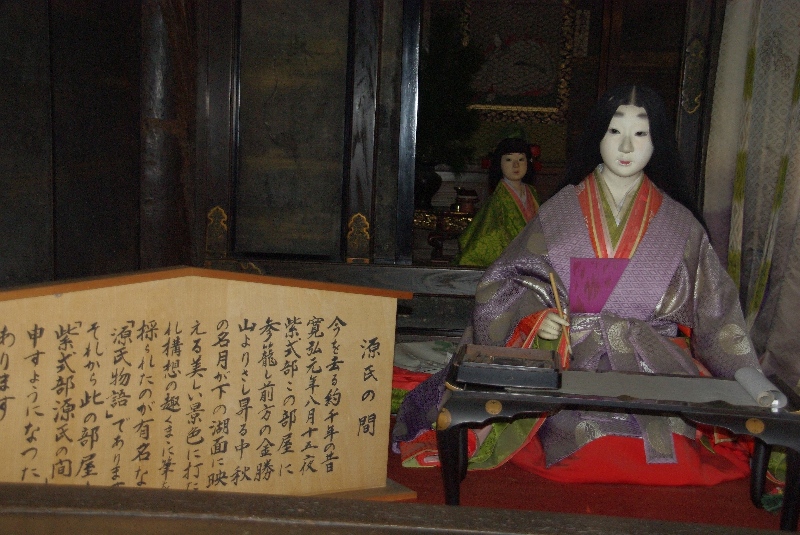 源氏の間
今を去る約千年の昔
寛弘元年八月十五夜
紫式部この部屋に
参籠し前方の金勝
山よりさし昇る中秋
の名月が下の湖面に映
える美しい景色に打た
れ構想の趣くまに筆を
採られたのが有名な
「源氏物語」であります
それから此の部屋
「紫式部源氏の間」
申すようになつた
あります